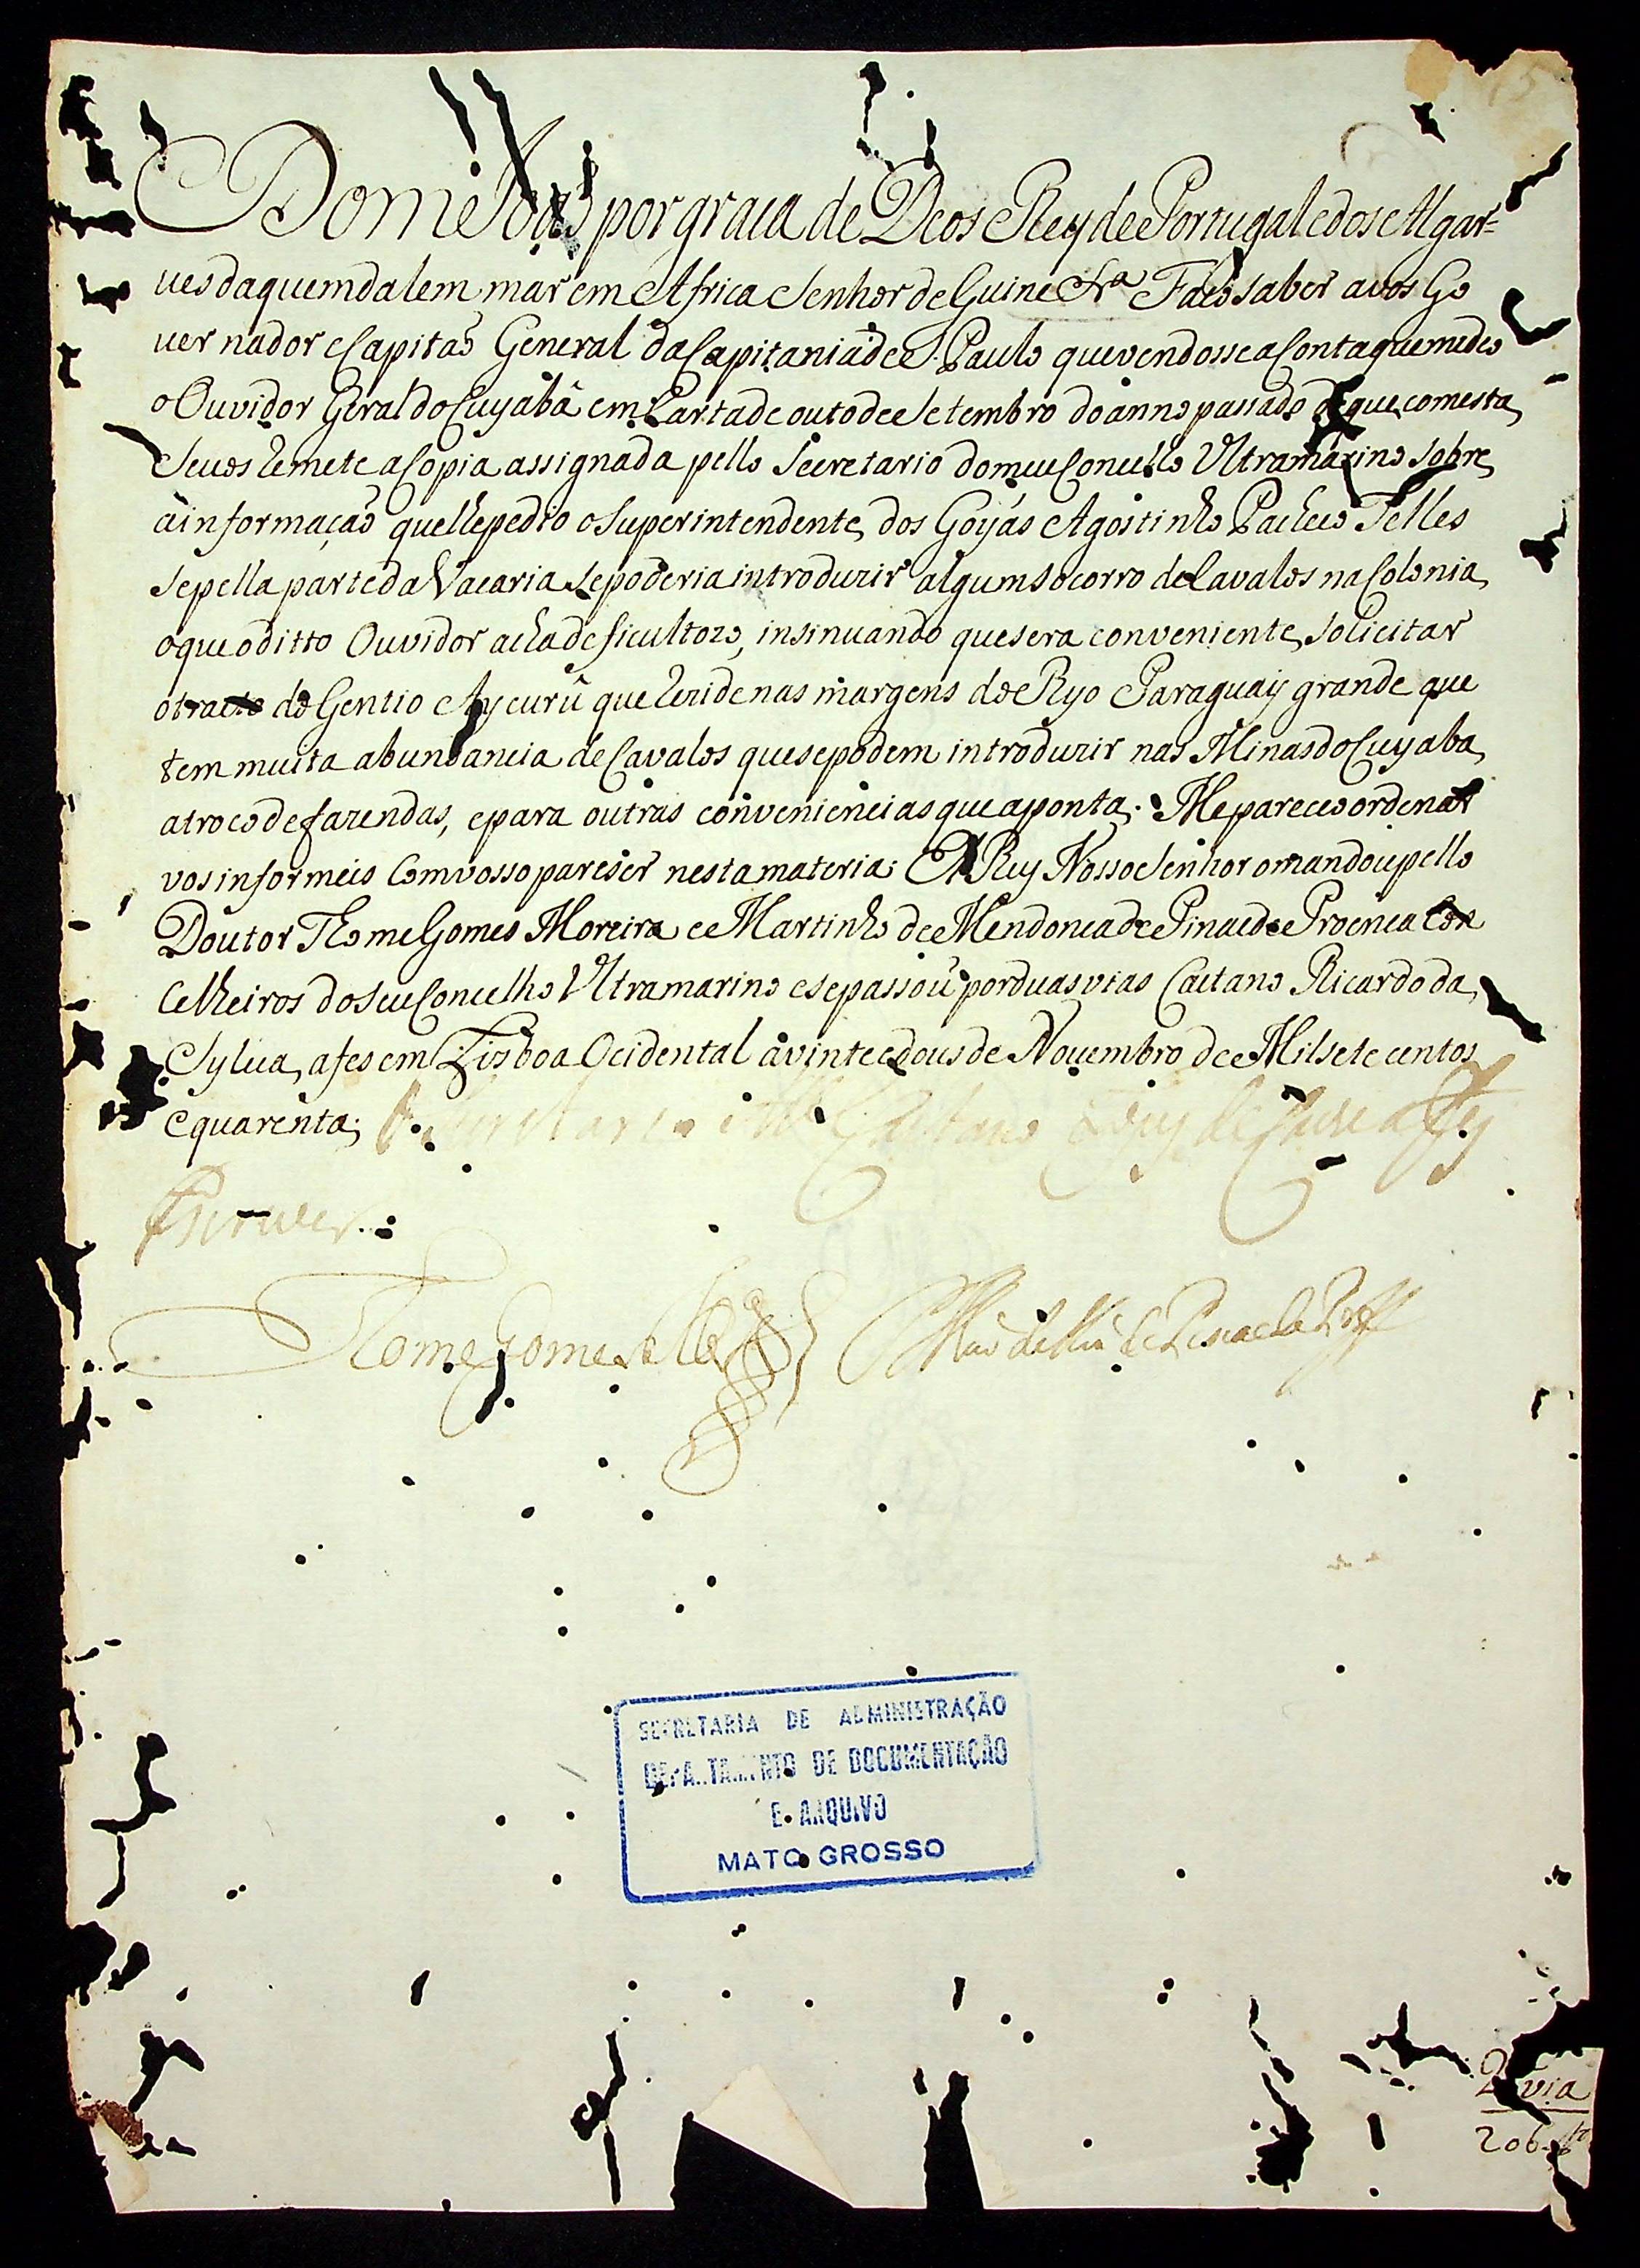 Dom João por graça de Deos Rey de Portugal e dos Algar=
ues daquem dalem mar em Africa Senhor de Guine &ra Faço saber avos Go
uernador e Capitaõ General da Capitania de S. Paulo que vendosse a Conta que me deo
o Ouvidor Geral do Cuyabâ em Carta de outo de Setembro do anno passado de que com esta
se uos Remete a Copia assignada pello Secretario do meu Concelho Vltramarino sobre
a informaçaõ que lhe pedio o Superintendente dos Goyás Agostinho Pacheco Telles
se pella parte da Vacaria se poderia introduzir algum socorro de Cavalos na Colonia,
o que o ditto Ouvidor acha deficultozo, insinuando que sera conveniente, solicitar
o tracto do Gentio Aycurû que Rezide nas margens do Ryo Paraguay grande que
tem muita abundancia de Cavalos que se podem introduzir nas Minas do Cuyaba
a troco de fazendas, e para outras conveniencias que aponta. Me pareceo ordenar
vos informeis Com vosso pareser nesta materia; El Rey Nosso Senhor o mandou pello
Doutor Thome Gomes Moreira e Martinho de Mendonca de Pina e de Proenca Con
celheiros do seu Concelho Vltramarino e se passou por duas vias Caetano Ricardo da
Sylua, a fes em Lisboa Ocidental a vinte e dous de Nouembro de Mil sete centos
e quarenta; O Secretario Mel Caetano Lopes de Lavre a fez
escrever.
Thome Gomes Mora Marto de Mca de Pina e de Proca
SECRETARIA DE ADMINISTRAÇÃO
DEPARTAMENTO DE DOCUMENTAÇÃO
E ARQUIVO
MATO GROSSO
2ª via